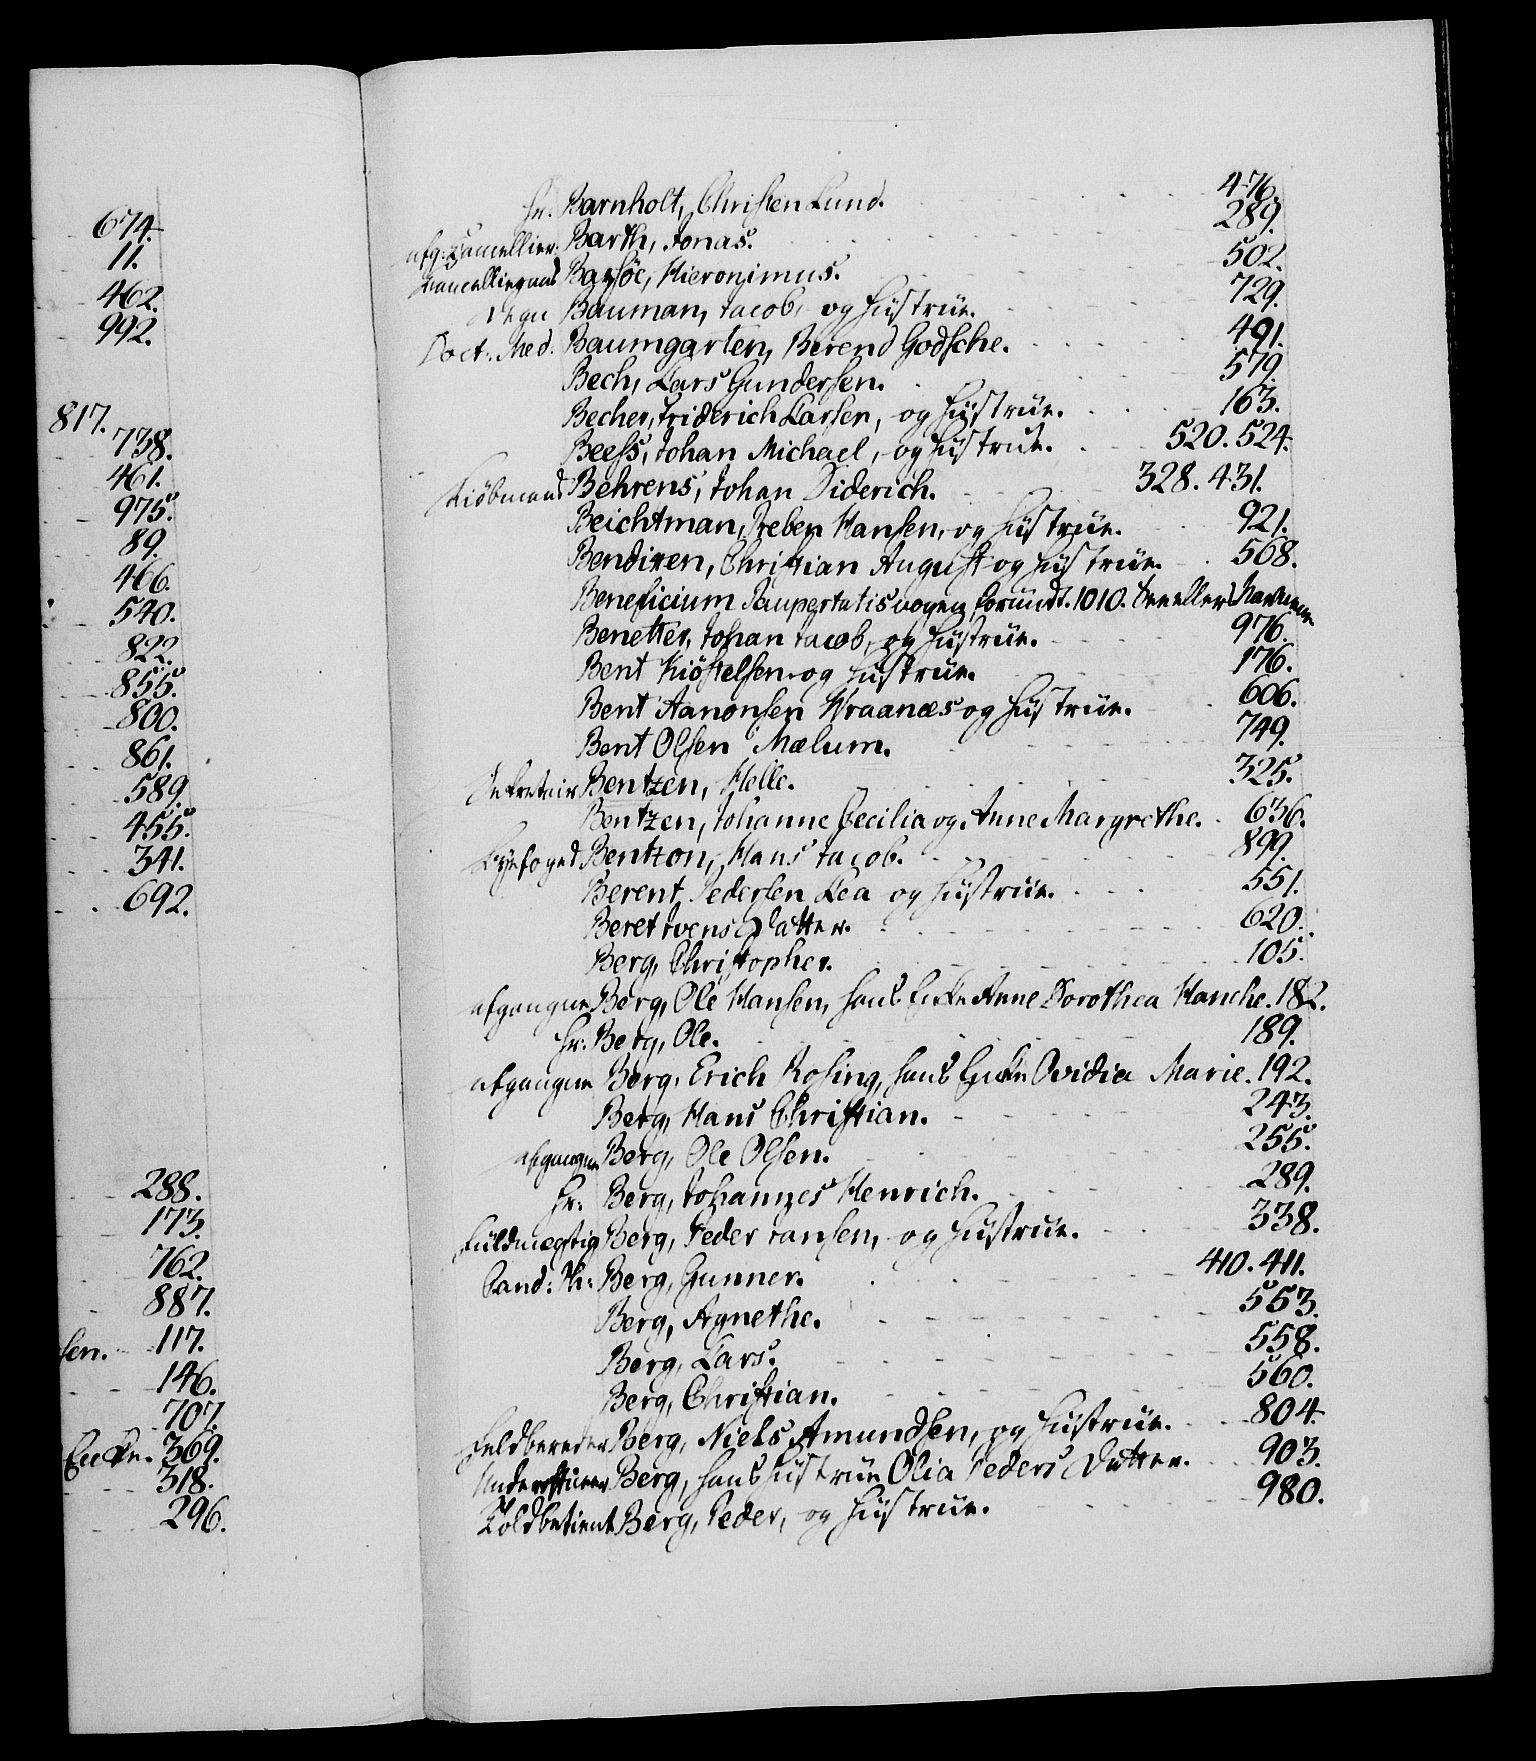 674.
11.
462.
992.
817.
738.
461.
975.
89.
466.
540.
822.
855.
800.
861.
589.
455.
341.
692.
288.
173.
762.
887.
sen. 117.
146.
707.
Encke. 369.
318.
296.
Hr. Barnholt, Christen Lund. 476.
afg: Cancellier: Barth, Jonas. 289.
Cancelliegaad Basøe, Hieronimus. 502.
Degn Bauman, Jacob, og Hüstrüe. 729.
Doct: Med: Baumgarten, Berend Godsche. 491.
Bech, Lars Gundersen. 579.
Becher, Friderich Larsen, og Hüstrüe. 163.
Beess, Johan Michael, og Hüstrüe. 520. 524.
Kiøbmand Behrens, Johan Diderich. 328. 431.
Beichtman, Preben Hansen, og Hüstrüe. 921.
Bendixen, Christian August og Hüstrüe. 568.
Beneficium Paupertatis 1010.
Benetter, Johan Jacob, og Hüstrüe. 976.
Bent Kiøstelsen og Hüstrüe. 176.
Bent Aanonsen Wraanæs og Hüstrüe. 606.
Bent Olsen Mælum. 749.
Sekretair Bentzen, Melle. 325.
Bentzen, Johanne Cecilia og Anne Margrethe. 636.
Byefoged Bentzon, Hans Jacob. 899.
Berent Pedersen Lea og Hüstrüe. 551.
Beret Ivens Datter. 620.
Berg, Christopher. 105.
afgangne Berg, Ole Hansen, hans Encke Anne Dorothea Hanche. 182.
Hr: Berg, Ole. 189.
afgangne Berg, Erich Rosing, hans Encke Ovidia Marie. 192.
Berg, Hans Christian. 243.
afgangne Berg, Ole Olsen. 255.
Hr. Berg, Johannes Henrich. 289.
Füldmegtig Berg, Peder Jansen, og Hüstrüe. 338.
Cand: Th: Berg, Gunner. 410. 411.
Berg, Agnethe. 553.
Berg, Lars. 558.
Berg, Christian. 560.
Feldbereder Berg, Niels Amundsen, og Hüstrüe. 804.
Underofficeer Berg, hans Hüstrüe Olia Peders Datter. 903.
Toldbetient Berg, Peder, og Hüstrüe. 980.